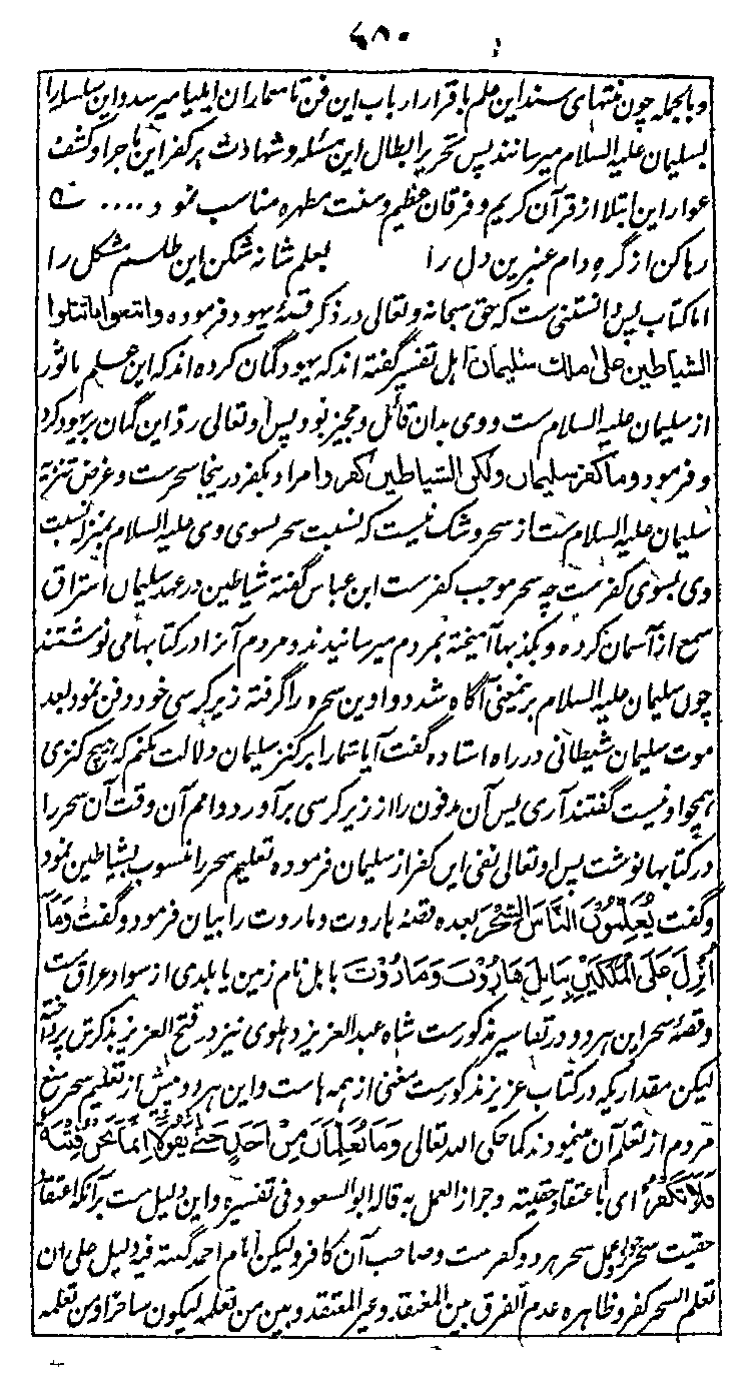 ۴۸۰
و بالجمله چون منتهای سند این علم باقرار ارباب این فن تا سماران ایلیا میرسد و این سلسله را
بسلیمان علیه السلام میرسانند پس تحریر ابطال این مسئله و شهادت بر کفر این ماجرا و کشف
عوار این ابتلا از قرآن کریم و فرقان عظیم و سنت مطهره مناسب نمود .... ه
رها کن از گره دام عنبرین دل را بعلم شانه شکن این طلسم مشکل را
اما کتاب پس دانستنی ست که حق سبحانه و تعالی در ذکر قصۀ یهود فرموده واتبعوا ما تتلوا
الشیاطین علی ملک سلیمان اهل تفسیر گفته اند که یهود گمان کرده اند که این علم ماثور
از سلیمان علیه السلام ست و وی بدان قائل و مجیز بود پس او تعالی رد این گمان بر یهود کرد
و فرمود و ما کفر سلیمان ولکن الشیاطین کفروا مراد بکفر درینجا سحرست و غرض تنزیه
سلیمان علیه السلام ست از سحر و شک نیست که نسبت سحر بسوی وی علیه السلام بمنزلۀ نسبت
وی بسوی کفرست چه سحر موجب کفرست ابن عباس گفته شیاطین در عهد سلیمان استراق
سمع از آسمان کرده و بکذبها آمیخته بمردم میرسانیدند و مردم آنرا در کتابها می نوشتند
چون سلیمان علیه السلام برینمعنی آگاه شد دواوین سحره را گرفته زیر کرسی خود دفن نمود بعد
موت سلیمان شیطانی در راه استاده گفت آیا شما را بر کنز سلیمان دلالت بکنم که هیچ کنزی
همچو او نیست گفتند آری پس آن مدفون را از زیر کرسی برآورد و امم آن وقت آن سحر را
در کتابها نوشت پس او تعالی نفی این کفر از سلیمان فرموده تعلیم سحر را منسوب بشیاطین نمود
و گفت یُعَلِّمُوْنَ النَّاسَ السِّحْرَ بعده قصۀ هاروت و ماروت را بیان فرمود و گفت وَمَآ
اُنْزِلَ عَلَی الْمَلَکَیْنِ بِبَابِلَ هَارُوْتَ وَمَارُوْتَ بابل نام زمین یا بلدی از سواد عراق ست
و قصۀ سحر این هر دو در تفاسیر مذکورست شاه عبد العزیز دهلوی نیز در فتح العزیز بذکرش پرداخته
لیکن مقداریکه در کتاب عزیز مذکورست مغنی از همه هاست و این هر دو پیش از تعلیم سحر منع
مردم از تعلم آن مینمودند کما حکی الله تعالی وَمَا یُعَلِّمَانِ مِنْ اَحَدٍ حَتّٰی یَقُوْلَا اِنَّمَا نَحْنُ فِتْنَةٌ
فَلَا تَکْفُرْ ای باعتقاد حقیته و جواز العمل به قاله ابو السعود فی تفسیره و این دلیل ست برآنکه اعتقاد
حقیت سحر و جواز عمل سحر هر دو کفرست و صاحب آن کافر و لیکن امام احمد گفته فیه دلیل علی ان
تعلم السحر کفر و ظاهره عدم الفرق بین المعتقد و غیر المعتقد و بین من تعلمه لیکون ساحرا و من تعلمه